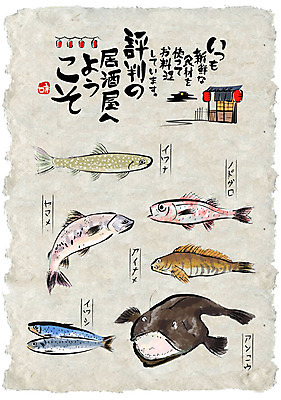 いつも
新鮮な
食材を
使って
お料理
しています。
評判の
居酒屋へ
よう
こそ
イワナ
ノドグロ
ヤマメ
アイナメ
イワシ
アンコウ